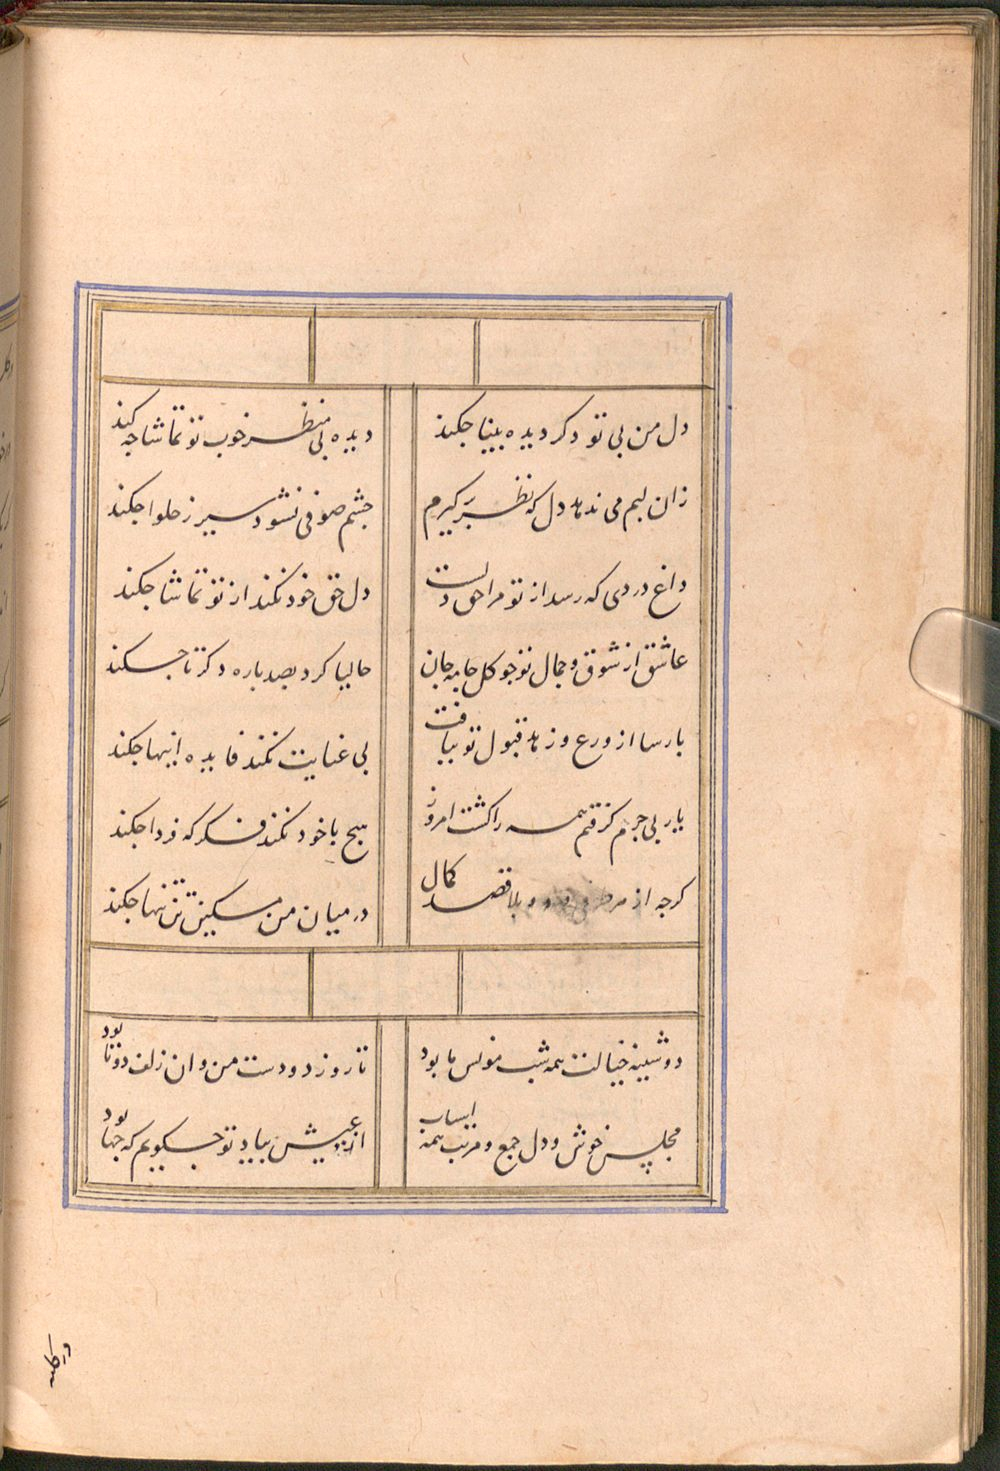 دل من بی تو دکر دیده بینا جکند
دیده بی منظر خوب تو تماشا جه کند
زان لبم می ندهد دل که نظر برکیرم
جشم صوفی نشود سیر ز حلوا جکند
داغ دردی که رسد از تو مرا حق دلست
دل حق خود نکند از تو تماشا جکند
عاشق از شوق و جمال تو جو کل جامه جان
حالیا کرد بصد باره دکر تا جکند
بارسا از ورع و زهد قبول تو نیافت
بی عنایت نکند فایده اینها جکند
یار بی جرم کرفتم همه را کشت امروز
هیج با خود نکند فکر که فردا جکند
کرجه از هر طرفی و بلا قصد کمال
در میان من مسکین تن تنها جکند
دوشینه خیالت همه شب مونس ما بود
تا روز دو دست من و ان زلف دوتا بود
مجلس خوش و دل جمع و مرتب همه اسباب
از عیش بیاد تو جکویم که جها بود